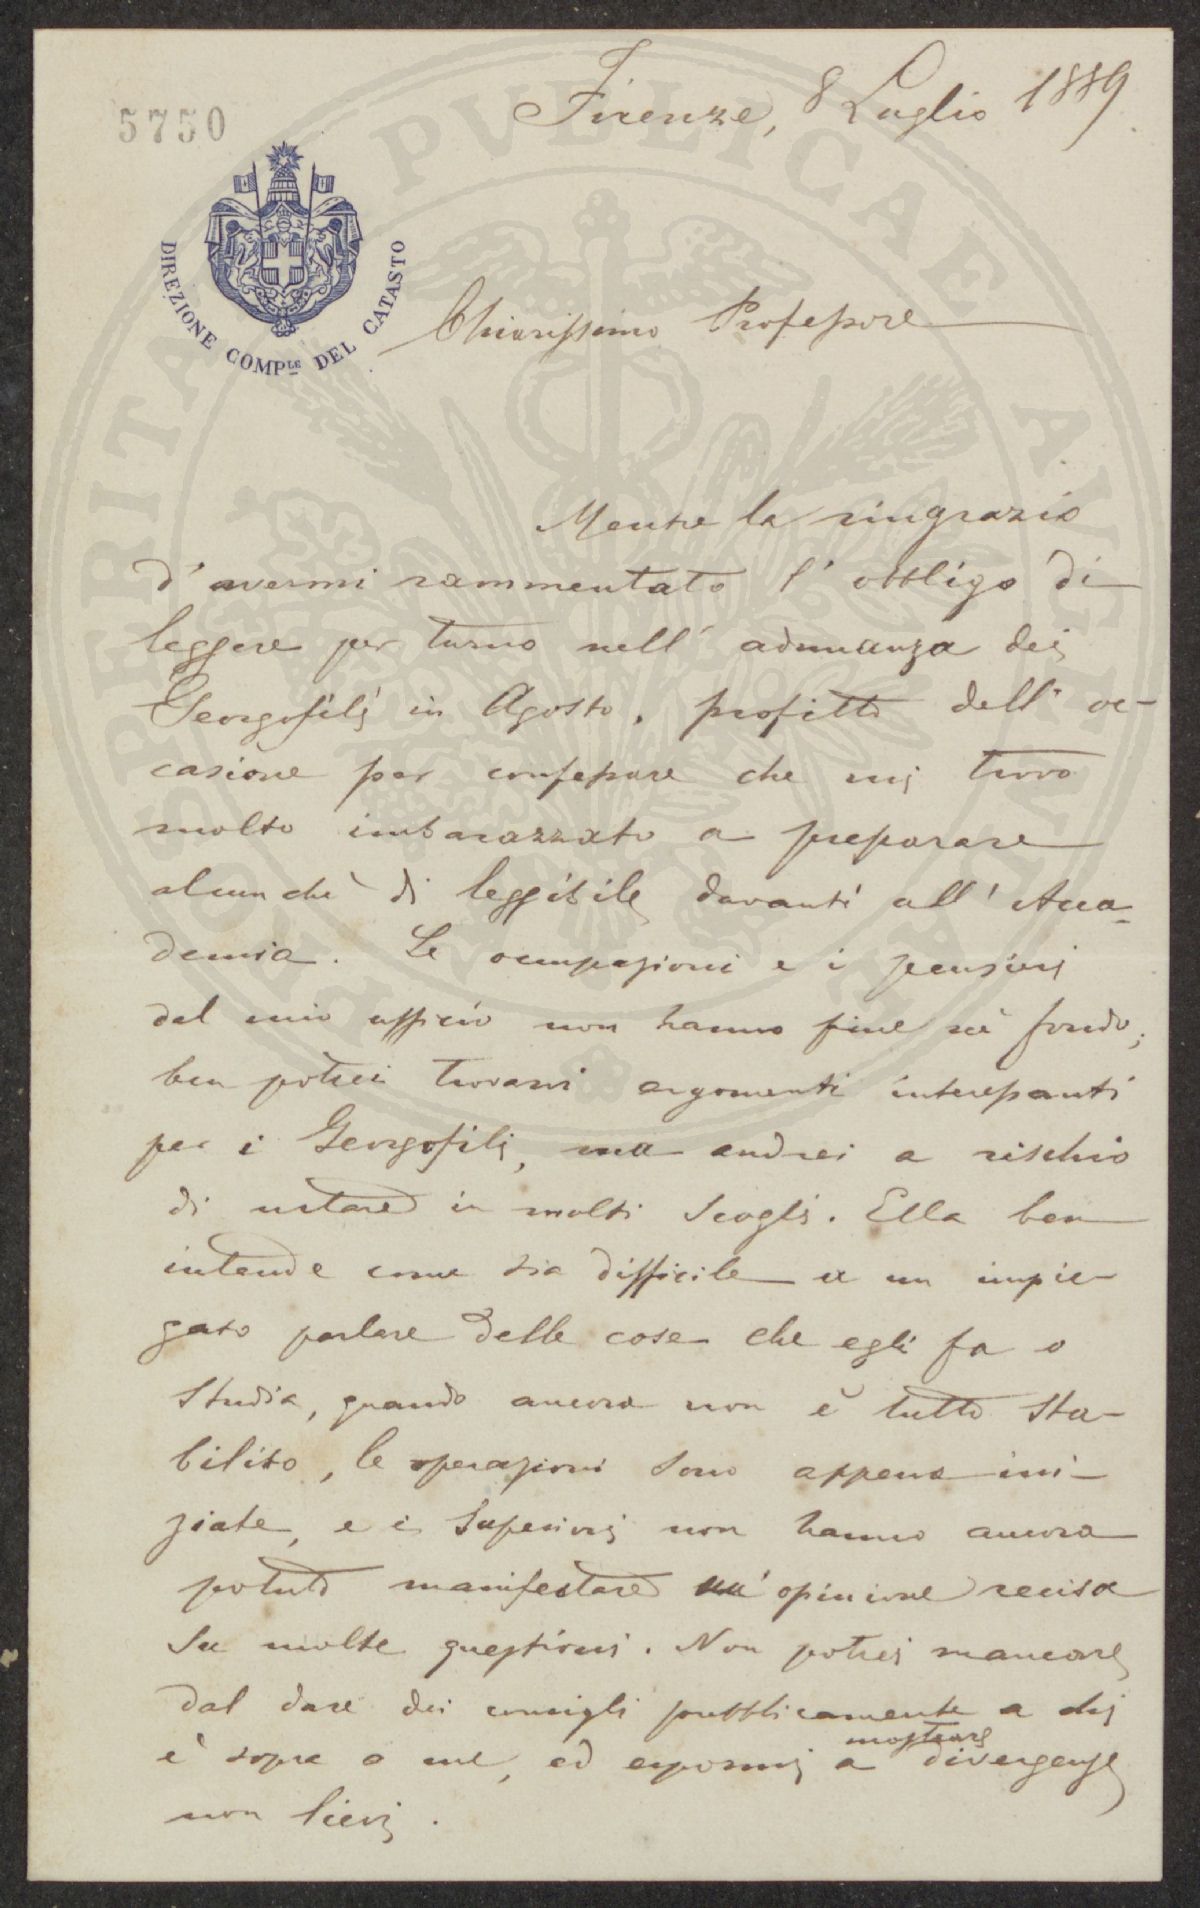 5750
Firenze, 8 Luglio 1889
DIREZIONE COMP.LE DEL CATASTO
Chiarissimo Professore
Mentre la ringrazio
d'avermi rammentato l'obbligo di
leggere per turno nell'adunanza dei
Georgofili in Agosto, profitto dell'oc-
casione per confessare che mi trovo
molto imbarazzato a preparare
alcunchè di leggibile davanti all'Acca-
demia. Le occupazioni e i pensieri
del mio ufficio non hanno fine nè fondo;
ben potrei trovarvi argomenti interessanti
per i Georgofili, ma andrei a rischio
di urtare in molti scogli. Ella ben
intende come sia difficile a un impie-
gato parlare delle cose che egli fa o
studia, quando ancora non è tutto sta-
bilito, le operazioni sono appena ini-
ziate, e i Superiori non hanno ancora
potuto manifestare un'opinione recisa
su molte questioni. Non potrei mancare
dal dare dei consigli pubblicamente a chi
è sopra a me, ed espormi a mostrare divergenze
non lievi.
PUBLICAE
PROSPERITATI
AUGENDAE